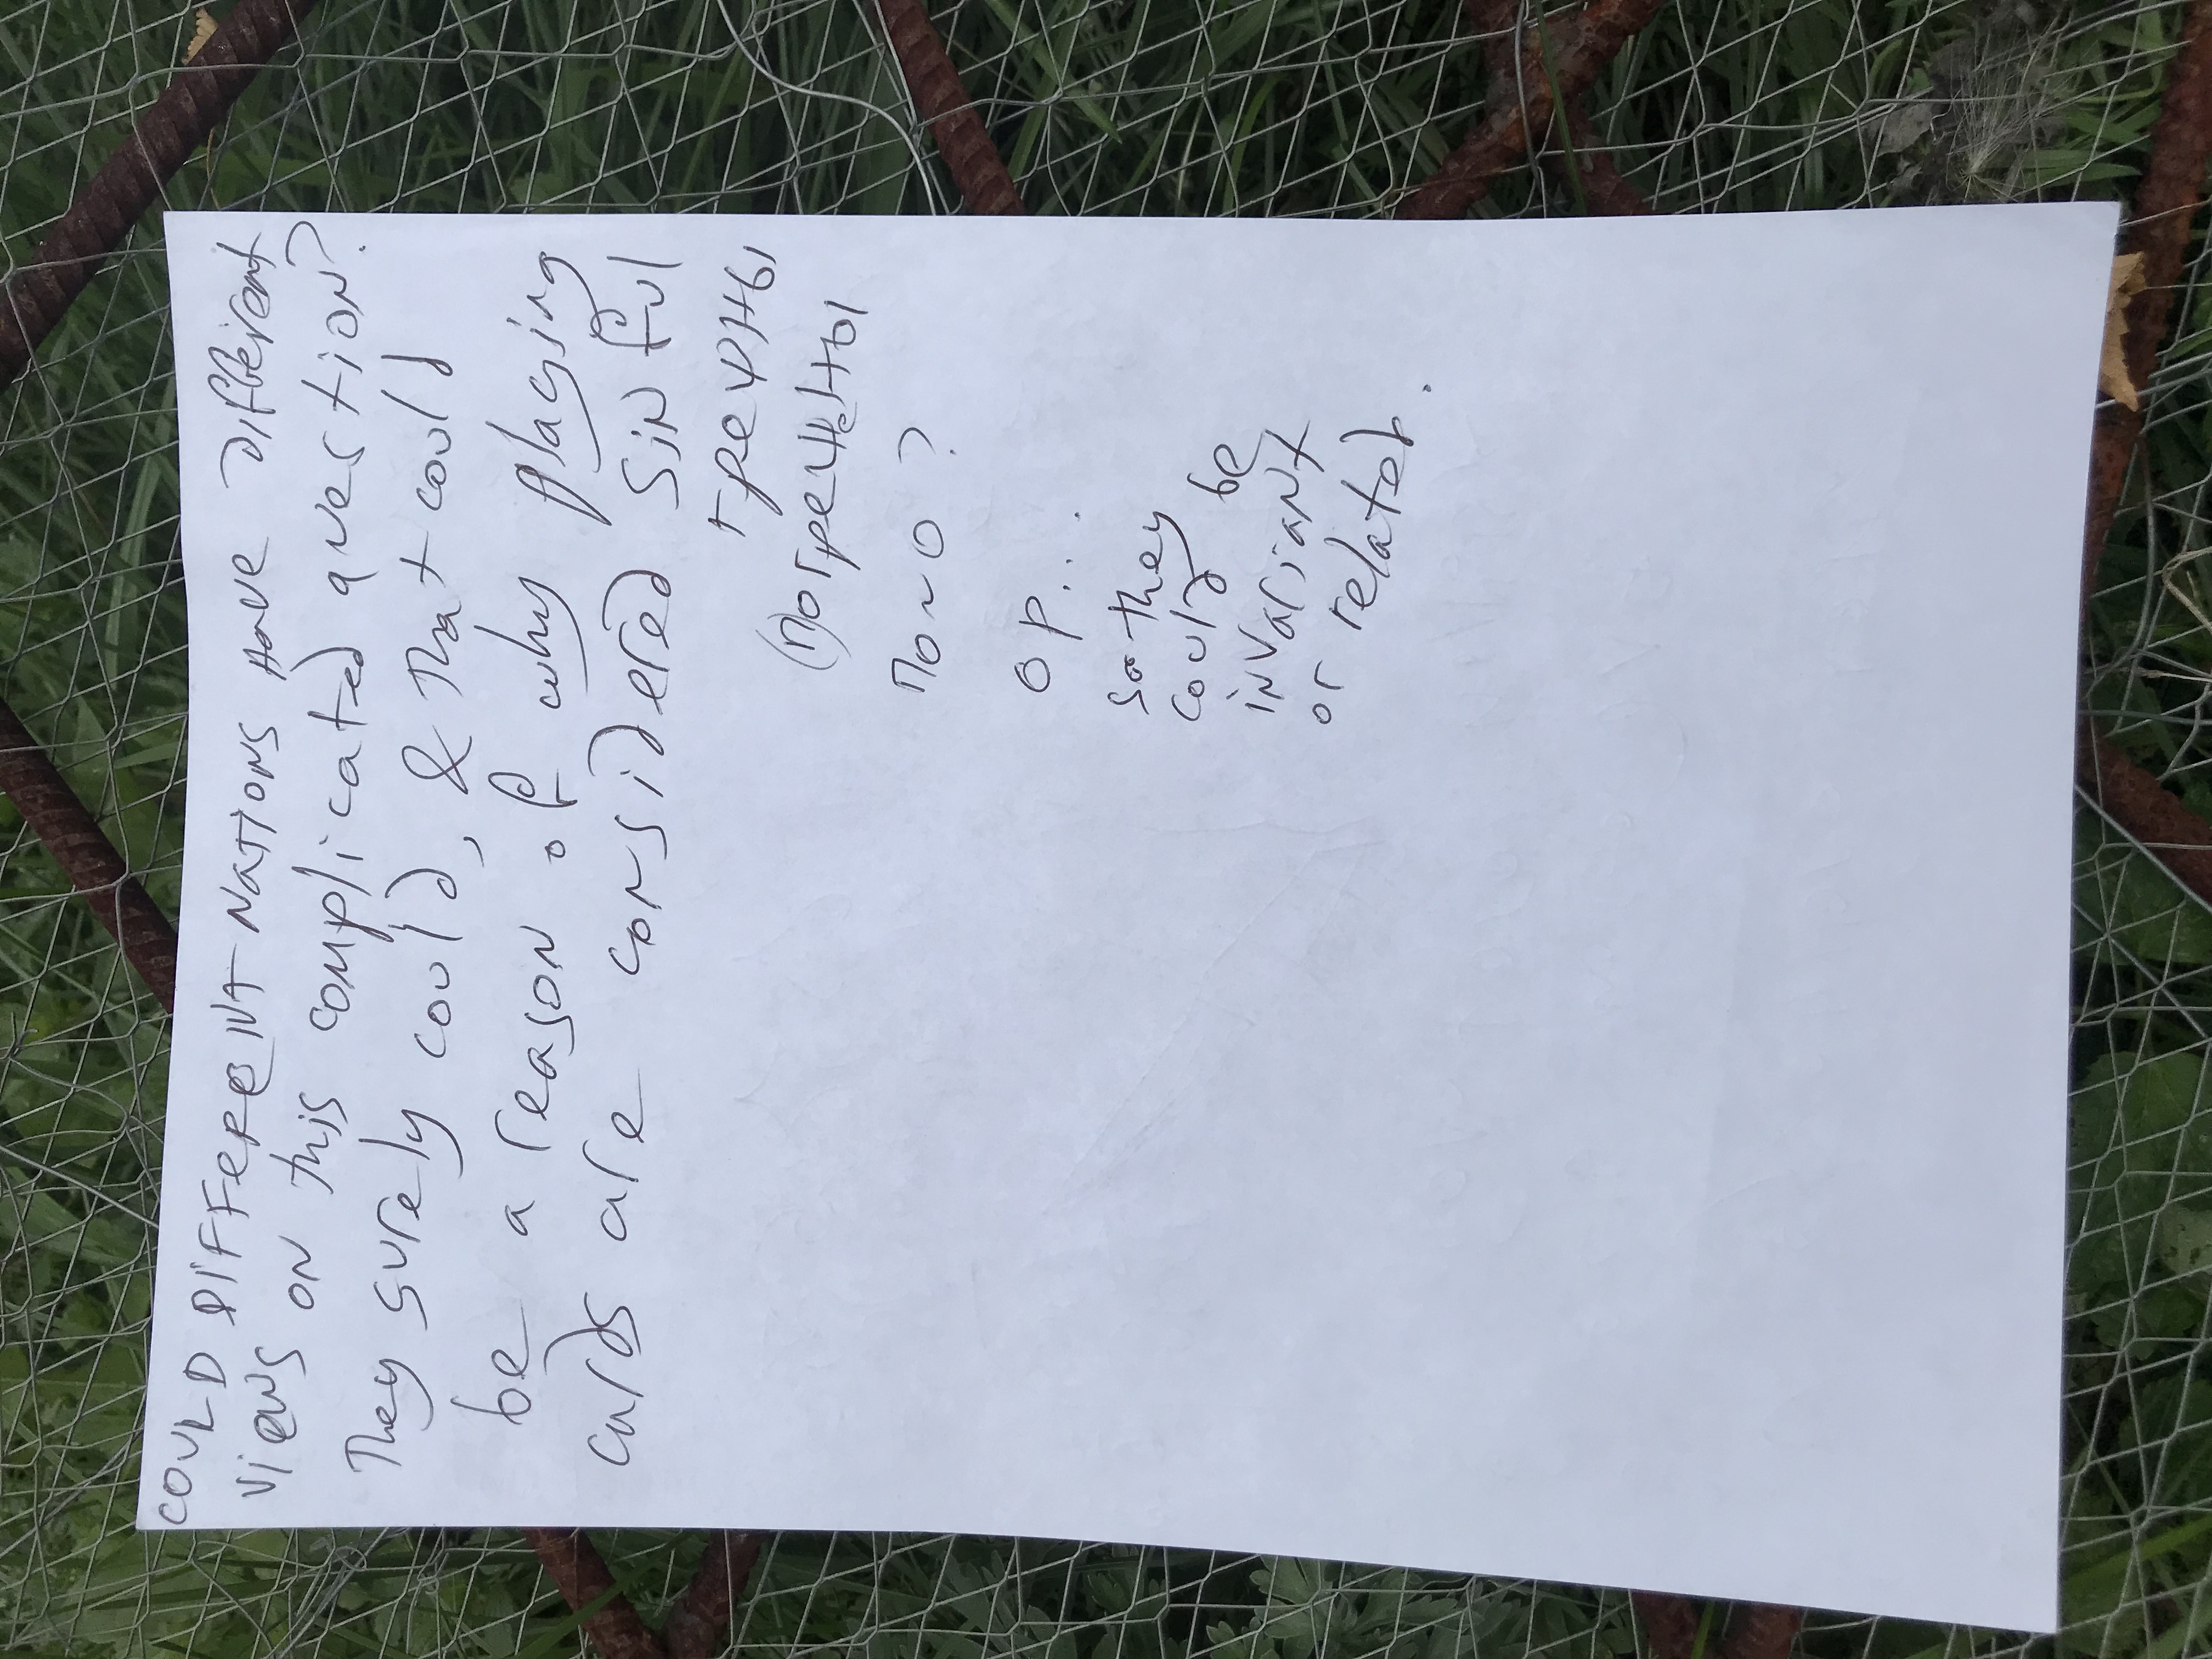 COULD DIFFERENT NATIONS HAVE Different
views on this complicated question?
They surely could, & that could
be a reason of why playing
cards are considered sinful
греψны
(п)огреψены
по~о ?
ор...
so they
could be
invariant
or related.